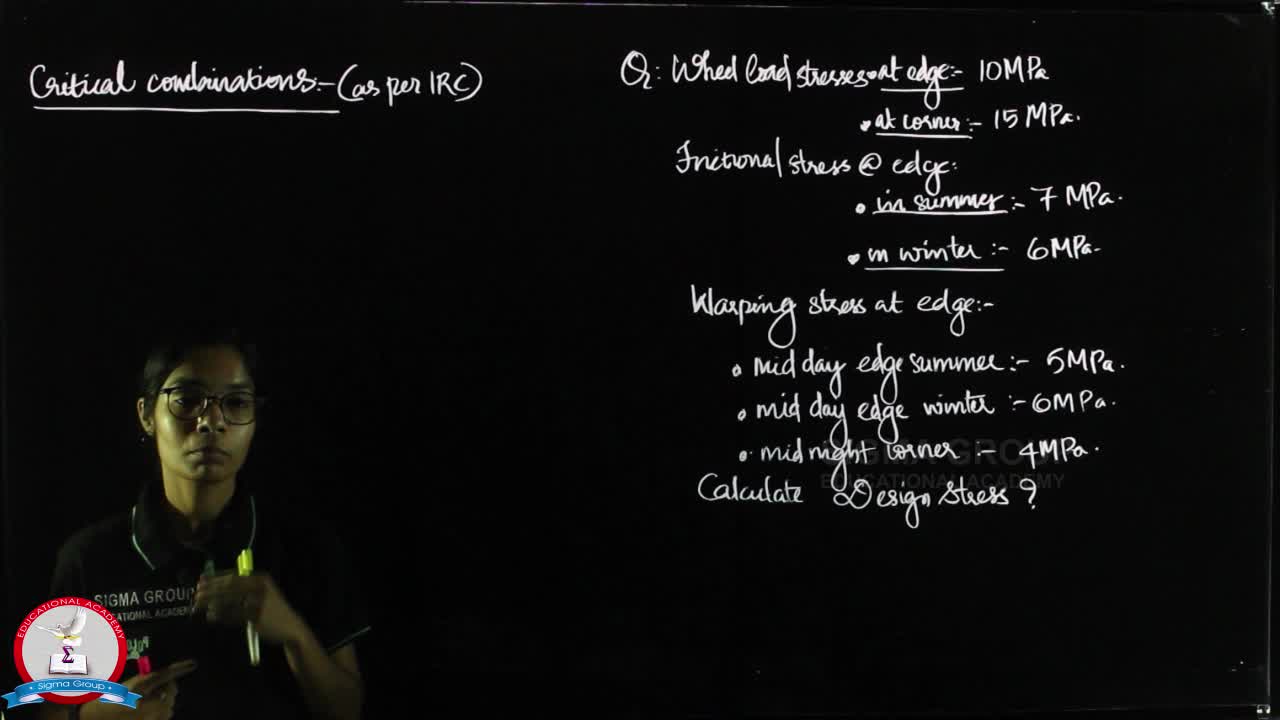 Critical combinations:- (as per IRC)
Q: Wheel load stresses • at edge:- 10MPa
• at corner:- 15 MPa.
Frictional stress @ edge:
• in summer:- 7 MPa.
• in winter:- 6MPa-
Warping stress at edge:-
• mid day edge summer:- 5MPa.
• mid day edge winter:- 6MPa.
• mid night corner:- 4MPa.
Calculate Design stress?
SIGMA GROUP
EDUCATIONAL ACADEMY
SIGMA GROUP
EDUCATIONAL ACADEMY
Σ
• Sigma Group •